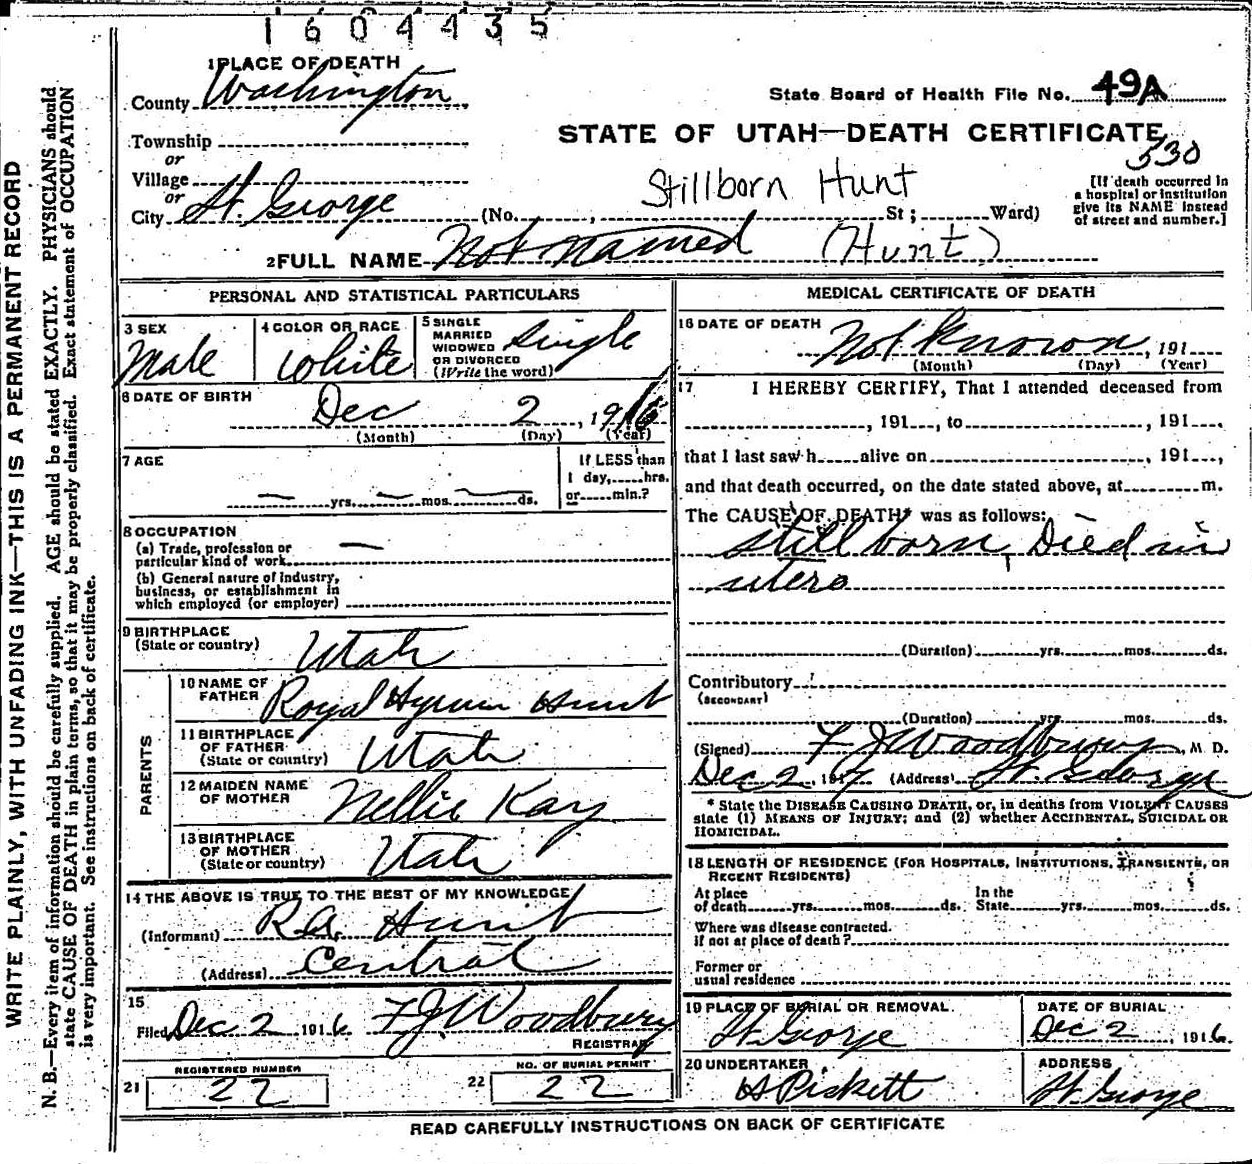 1604435
1 PLACE OF DEATH
County Washington
State Board of Health File No. 49A
STATE OF UTAH—DEATH CERTIFICATE
530
Township
or
Village
or
City St. George (No. , St; Ward)
Stillborn Hunt
[If death occurred in
a hospital or institution
give its NAME instead
of street and number.]
2 FULL NAME Not Named (Hunt)
PERSONAL AND STATISTICAL PARTICULARS
3 SEX
Male
4 COLOR OR RACE
White
5 SINGLE
MARRIED
WIDOWED
OR DIVORCED
(Write the word)
Single
6 DATE OF BIRTH
Dec 2, 1916
(Month) (Day) (Year)
7 AGE
— yrs. — mos. — ds.
If LESS than
1 day, hrs.
or min.?
8 OCCUPATION
(a) Trade, profession or
particular kind of work —
(b) General nature of industry,
business, or establishment in
which employed (or employer)
9 BIRTHPLACE
(State or country) Utah
PARENTS
10 NAME OF
FATHER Royal Hyrum Hunt
11 BIRTHPLACE
OF FATHER
(State or country) Utah
12 MAIDEN NAME
OF MOTHER Nellie Kay
13 BIRTHPLACE
OF MOTHER
(State or country) Utah
14 THE ABOVE IS TRUE TO THE BEST OF MY KNOWLEDGE
(Informant) Hunt
(Address) Central
15
Filed Dec 2 1916 F J Woodbury
REGISTRAR
21 REGISTERED NUMBER
22
22 NO. OF BURIAL PERMIT
22
MEDICAL CERTIFICATE OF DEATH
16 DATE OF DEATH
Not Known, 191
(Month) (Day) (Year)
17 I HEREBY CERTIFY, That I attended deceased from
, 191 , to , 191 ,
that I last saw h alive on , 191 ,
and that death occurred, on the date stated above, at m.
The CAUSE OF DEATH* was as follows:
Still born, Died in
utero
(Duration) yrs. mos. ds.
Contributory
(SECONDARY)
(Duration) yrs. mos. ds.
(Signed) F J Woodbury, M D.
Dec 2 1917 (Address) St. George
* State the DISEASE CAUSING DEATH, or, in deaths from VIOLENT CAUSES
state (1) MEANS OF INJURY; and (2) whether ACCIDENTAL, SUICIDAL OR
HOMICIDAL.
18 LENGTH OF RESIDENCE (FOR HOSPITALS, INSTITUTIONS, TRANSIENTS, OR
RECENT RESIDENTS)
At place
of death yrs. mos. ds.
In the
State yrs. mos. ds.
Where was disease contracted.
if not at place of death?
Former or
usual residence
19 PLACE OF BURIAL OR REMOVAL
St. George
DATE OF BURIAL
Dec 2, 1916.
20 UNDERTAKER
Pickett
ADDRESS
St George
READ CAREFULLY INSTRUCTIONS ON BACK OF CERTIFICATE
WRITE PLAINLY, WITH UNFADING INK—THIS IS A PERMANENT RECORD
N. B.—Every item of information should be carefully supplied. AGE should be stated EXACTLY. PHYSICIANS should
state CAUSE OF DEATH in plain terms, so that it may be properly classified. Exact statement of OCCUPATION
is very important. See instructions on back of certificate.